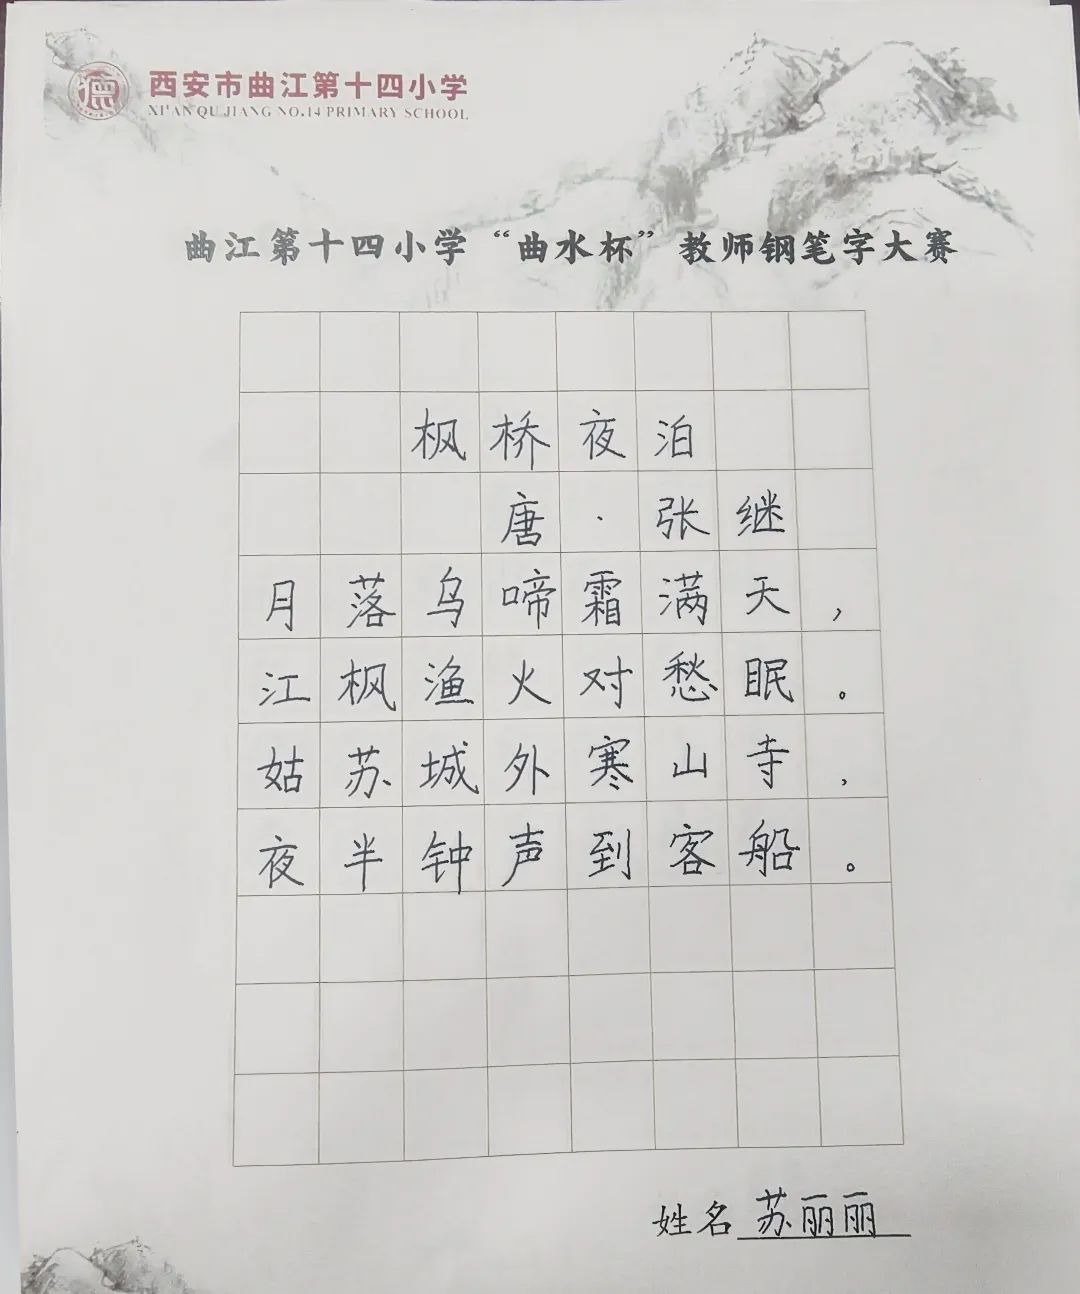 德
西安市曲江第十四小学
XI'AN QU JIANG NO.14 PRIMARY SCHOOL
曲江第十四小学“曲水杯”教师钢笔字大赛
枫桥夜泊
唐·张继
月落乌啼霜满天，
江枫渔火对愁眠。
姑苏城外寒山寺，
夜半钟声到客船。
姓名 苏丽丽